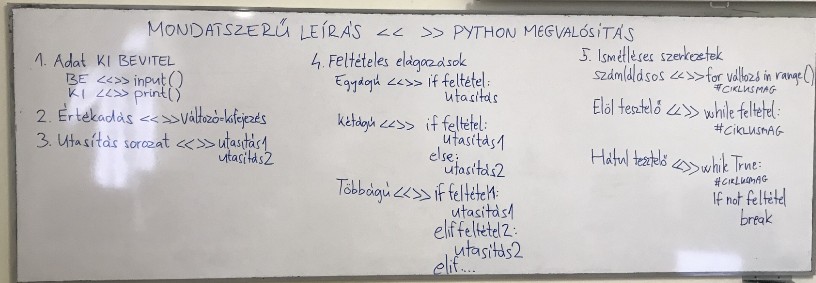 MONDATSZERŰ LEÍRÁS << >> PYTHON MEGVALÓSÍTÁS
1. Adat KI BEVITEL
BE <<>> input()
KI <<>> print()
2. Értékadás <<>> Változó=kifejezés
3. Utasítás sorozat <<>> utasítás1
utasítás2
4. Feltételes elágazások
Egyágú <<>> if feltétel:
utasítás
Kétágú <<>> if feltétel:
utasítás1
else:
utasítás2
Többágú <<>> if feltétel1:
utasítás1
elif feltétel2:
utasítás2
elif...
5. Ismétléses szerkezetek
számlálásos <<>> for változó in range()
#CIKLUSMAG
Elöl tesztelő <<>> while feltétel:
#CIKLUSMAG
Hátul tesztelő <<>> while True:
#CIKLUSMAG
If not feltétel
break